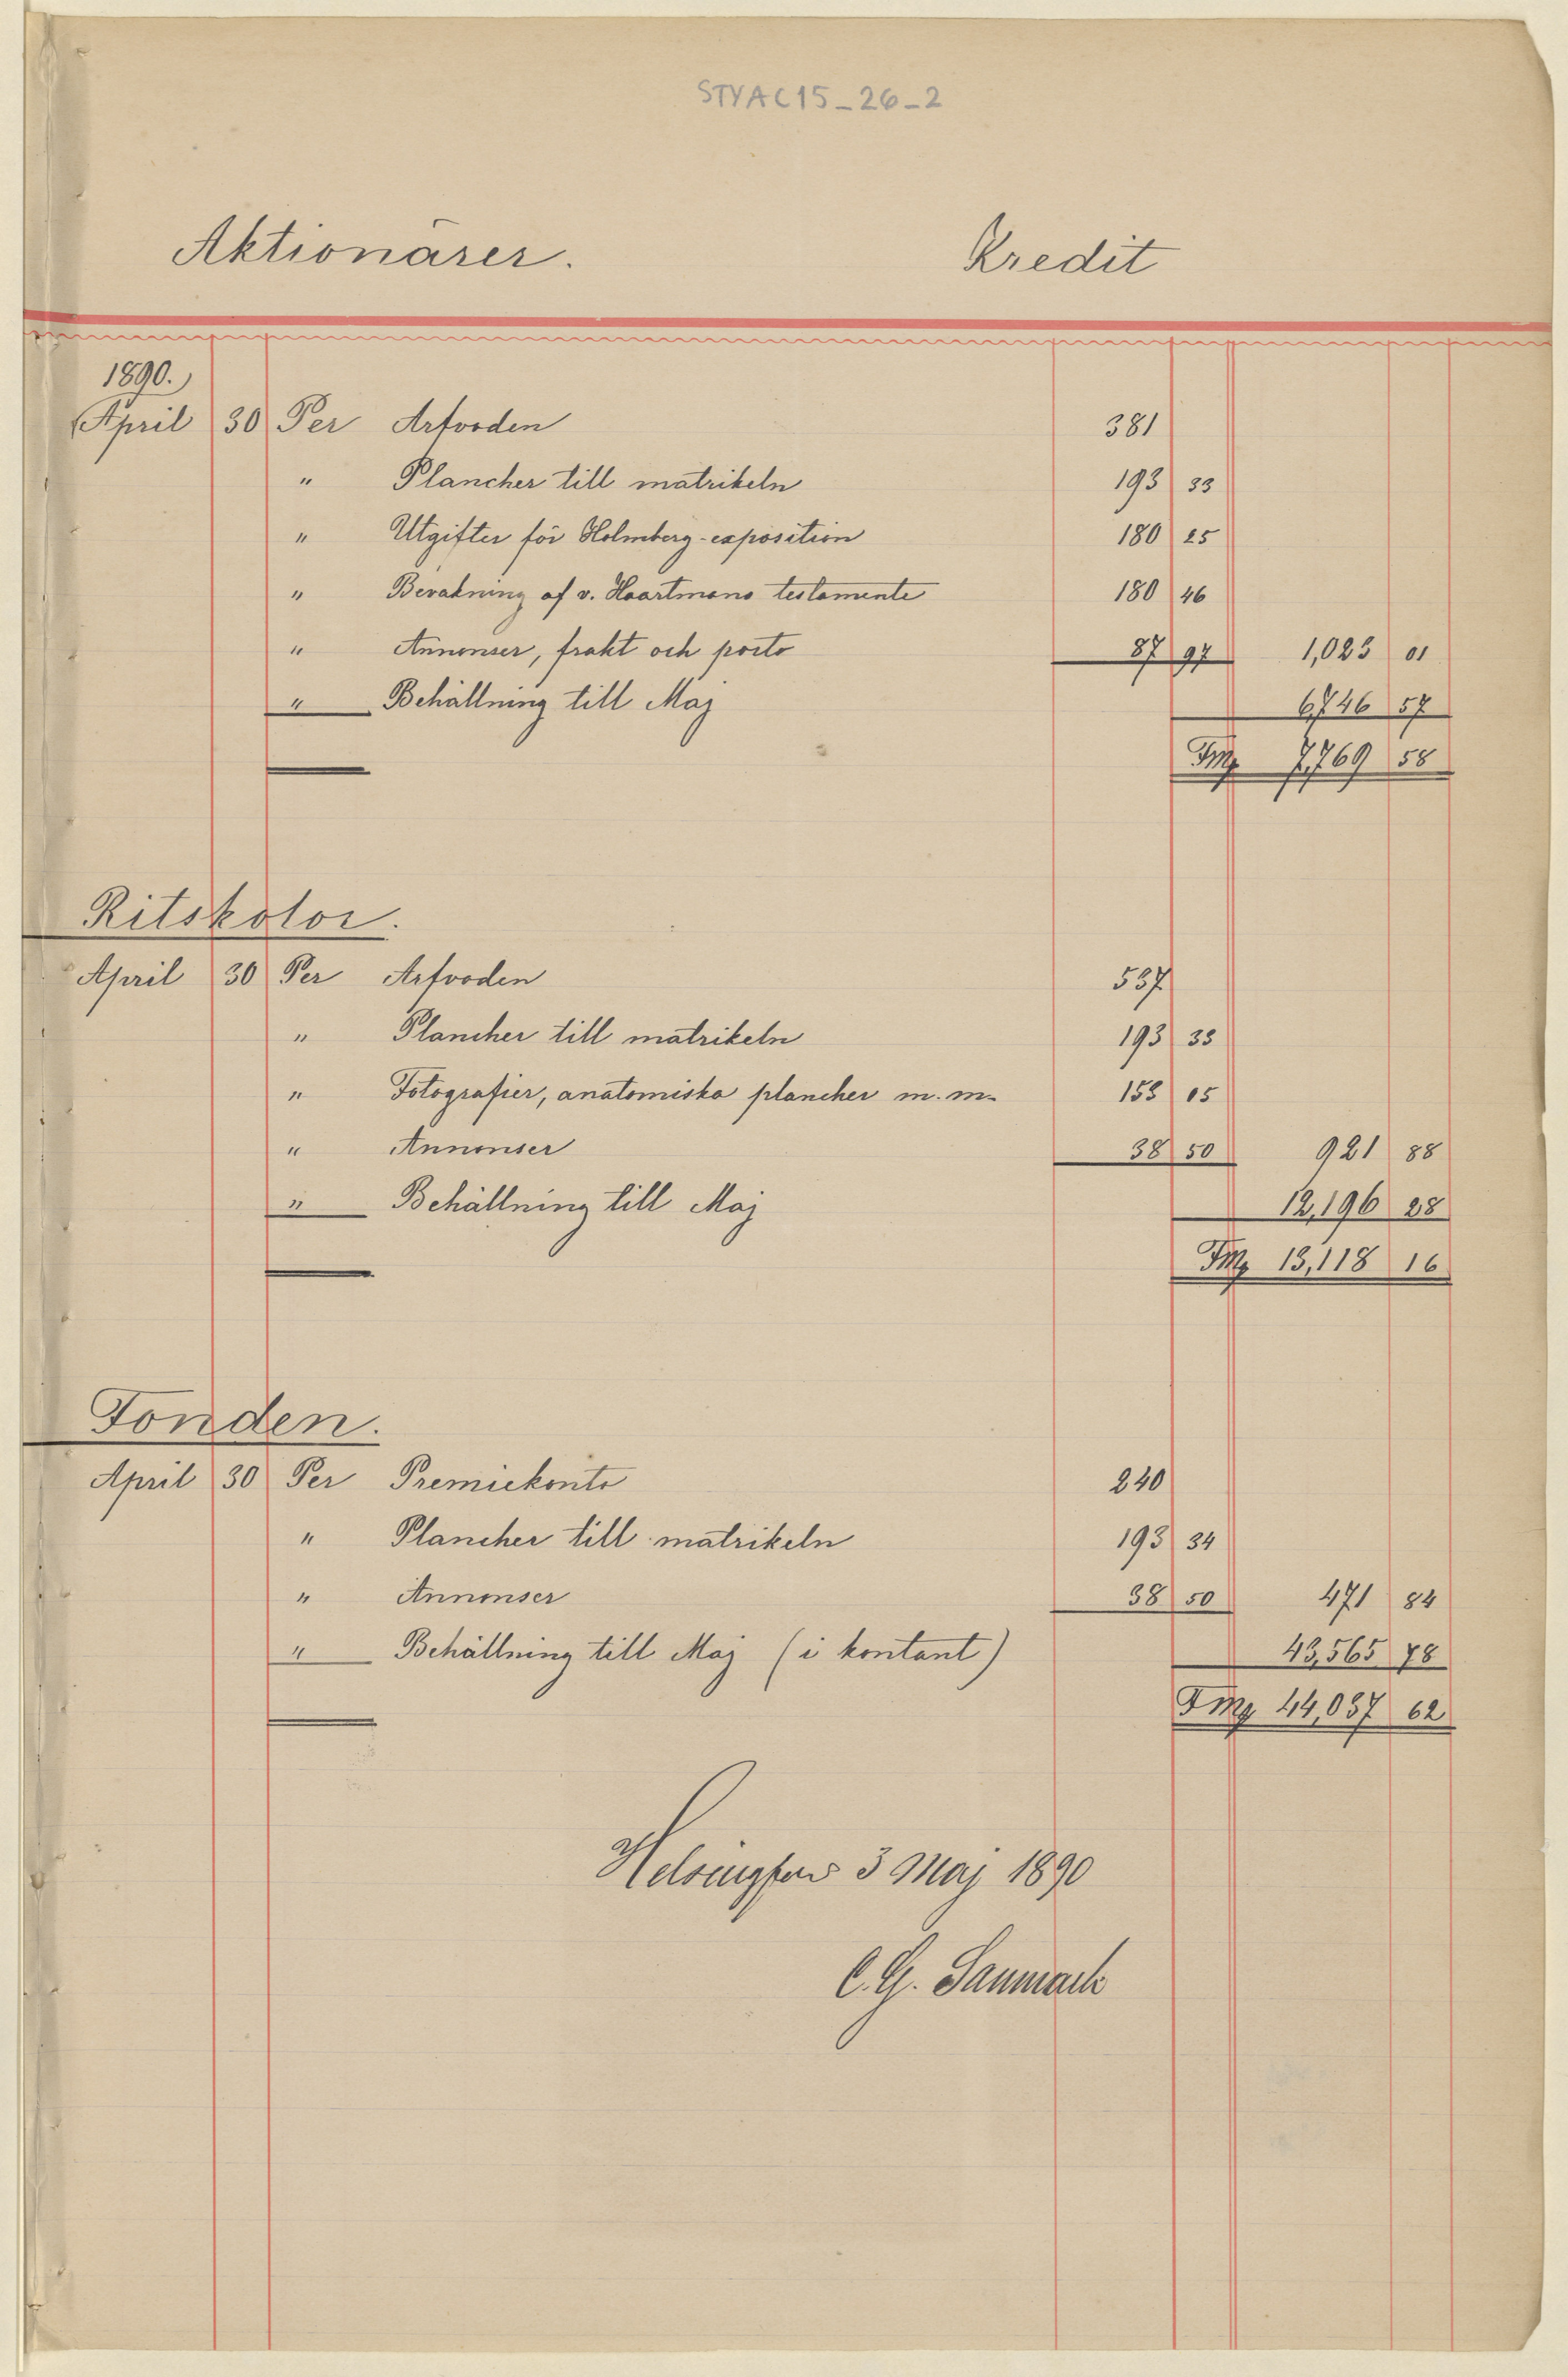 STYAC15_26_2
Aktionärer. Kredit
1890.
April 30 Per Arfvoden 381
" Plancher till matrikeln 193 33
" Utgifter för Holmberg-exposition 180 25
" Bevakning af v. Haartmans testamente 180 46
" Annonser, frakt och porto 87 97 1,023 01
" Behållning till Maj 6,746 57
Fmg 7,769 58
Ritskolor.
April 30 Per Arfvoden 537
" Plancher till matrikeln 193 33
" Fotografier, anatomiska plancher m. m. 153 05
" Annonser 38 50 921 88
" Behållning till Maj 12,196 28
Fmg 13,118 16
Fonden.
April 30 Per Premiekonto 240
" Plancher till matrikeln 193 34
" Annonser 38 50 471 84
" Behållning till Maj (i kontant) 43,565 78
Fmg 44,037 62
Helsingfors 3 Maj 1890
C. G. Sanmark